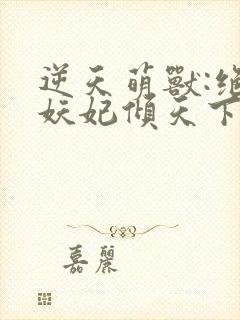 逆天萌獸:絕
妖妃傾天下
嘉麗